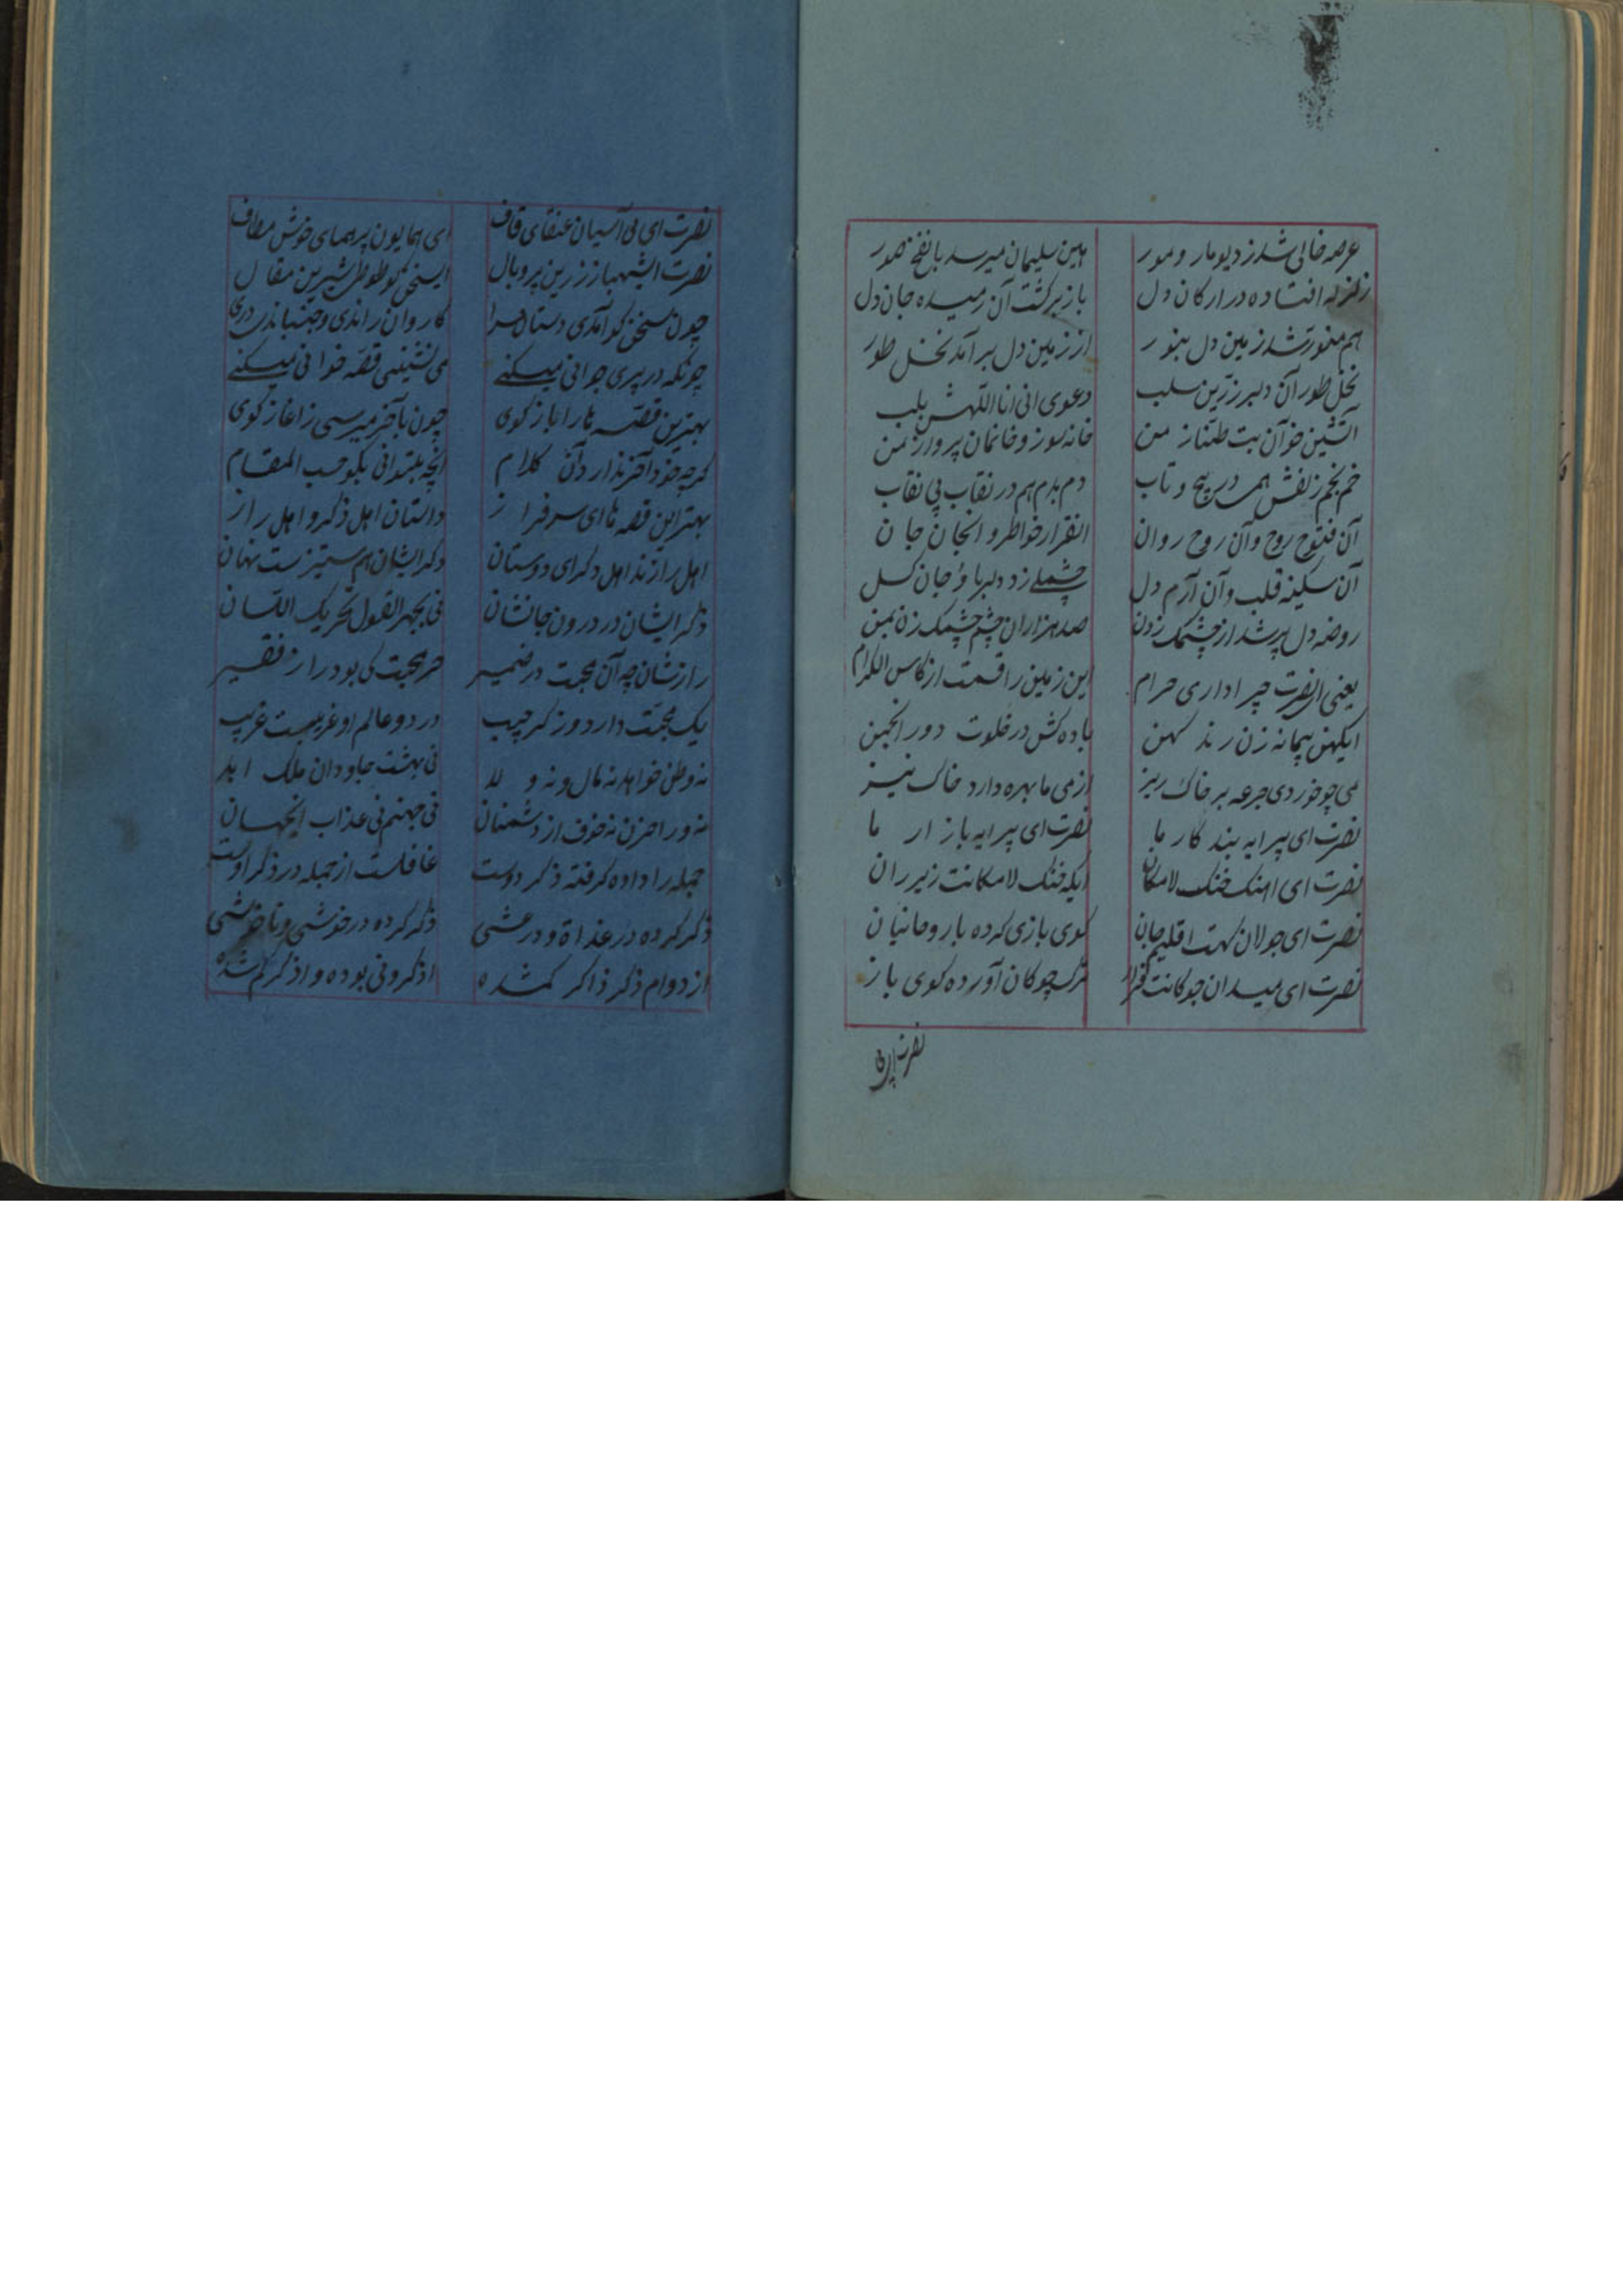 عرصه خالی شد ز دیو و مار و مور هین سلیمان میرسد با نفخ صور
زلزله افتاده در ارکان دل باز برگشت آن رمیده جان دل
هم منور شد زمین دل بنور از زمین دل برآمد نخل طور
نخل طور آن دلبر زرین سلب دعوی انی انا اللهش بلب
آتشین خو آن بت طناز من خانه سوز و خانمان پرداز من
خم بخم زلفش همه در پیچ و تاب دم بدم هم در نقاب بی نقاب
آن فتوح روح و آن روح روان خاطر و جان
آن سکینه قلب و آن آرام دل زد دلربا و جان کسل
روضه دل پر شد از چشمک زدن صد هزاران چشم چشمک زن بمن
یعنی النصرت چرا داری حرام این زمین را قسمت از کاس الکرام
ایکهن پیمانه زن رند کهن باده کش در خلوت و در انجمن
می چو خوردی جرعه بر خاک ریز از می ما بهره دارد خاک نیز
نصرت ای پیرایه بند کار ما نصرت ای پیرایه بازار ما
نصرت ای خنک لامکان ایکه خنک لامکانت زیر ران
نصرت ای جولان کهت اقلیم جان کوی بازی کرده با روحانیان
نصرت ای میدان چوکان آورده کوی باز
نصرت ای
نصرت ای بی آشیان عنقای قاف ای همایون پر همای خوش مطاف
نصرت ایشهباز زرین پر و بال ایسخن کو طوطی شیرین مقال
چون سخن کو آمدی دستان سرا کاروان راندی و جنباندر درا
چونکه در پیری جوانی میکنے می نشینی قصه خوانی میکنے
بهترین قصه ها را باز کوی چون بآخر میرسی ز اغاز کوی
کرچه خود آخر ندارد آن کلام آنچه بتدانی بکو حسب المقام
بهترین قصه ها ای سرفراز داستان اهل ذکر و اهل راز
اهل رازند اهل ذکر ای دوستان ذکر ایشان هم نهان
ذکر ایشان در درون جانشان نی بجهر القول تحریک اللسان
رازشان چه آن محبت در ضمیر جز محبت کی بود راز فقیر
یک محبت دارد و ز کر در دو عالم او غریبست غریب
نه وطن خواهد نه مال و نه ولد نی بهشت جاودان ملک ابد
نه ورا حزن نه خوف از دشمنان نی جهنم نی عذاب آنجهان
جمله را داده کرفته ذکر دوست غافلست از جمله در ذکر اوست
ذکر کرده در غداة و در عشی ذکر کرده در خوشی و ناخوشی
از دوام ذکر ذاکر کمشده اذکرونی بوده و اذکرکم شده